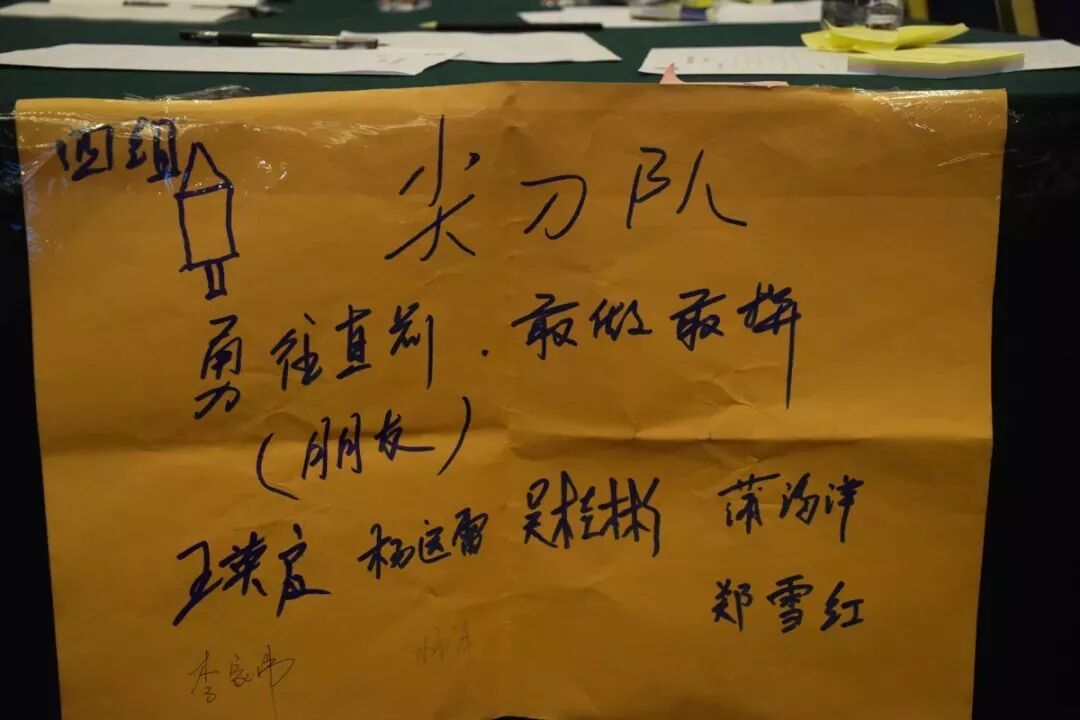 四组
尖刀队
勇往直前．敢做敢拼
（朋友）
王荣 杨运雷 吴桂彬 蒲海洋
郑雪红
李家伟